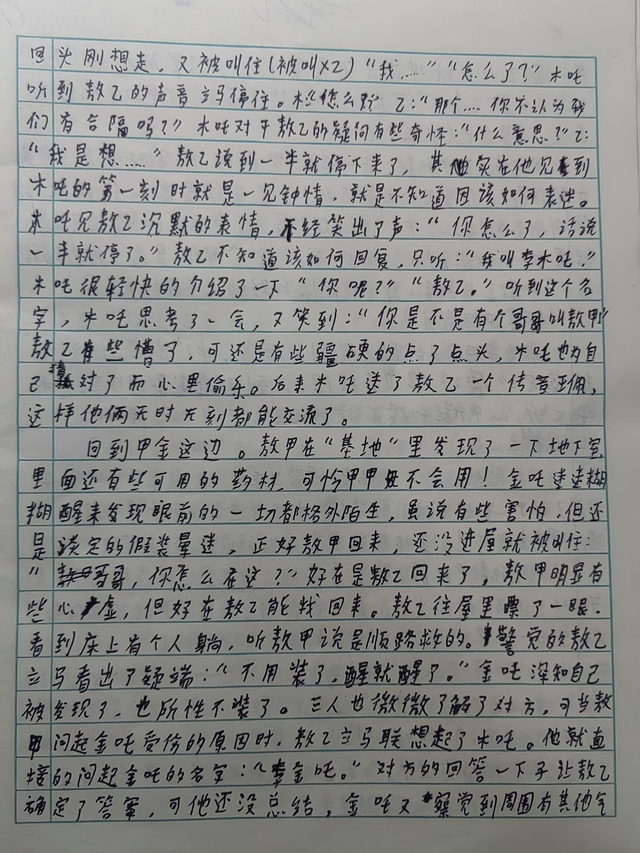 回头刚想走，又被叫住(被叫X2)“我……”“怎么了?”木吒
听到敖乙的声音立马停住。木“怎么了?”乙:“那个…. 你不认为我
们有合隔吗?”木吒对于敖乙的疑问有些奇怪:“什么意思?”乙:
“我是想……”敖乙读到一半就停下来了，其他实在他见到
木吒的第一刻时就是一见钟情，就是不知道因该如何表达。
木吒见敖乙沉默的表情，不经笑出了声:“你怎么了，话说
一半就停了。”敖乙不知道该如何回复，只听:“我叫李木吒。”
木吒很轻快的介绍了一下“你呢?”“敖乙。”听到这个名
字，木吒思考了一会，又笑到:“你是不是有个哥哥叫敖甲”
敖乙有些懵了，可还是有些疆硬的点了点头，木吒也为自
己猜对了而心里偷乐。后来木吒送了敖乙一个传音玉佩，
这样他俩无时无刻都能交流了。
回到甲金这边。敖甲在“基地”里发现了一下地下室
里面还有些可用的药材，可怜甲甲不会用！金吒迷迷糊
糊醒来发现眼前的一切都格外陌生，虽说有些害怕，但还
是淡定的假装晕迷，正好敖甲回来，还没进屋就被叫住:
“哥哥，你怎么在这?”好在是敖乙回来了，敖甲明显有
些心虚，但好在敖乙能找回来。敖乙往屋里瞟了一眼.
看到床上有个人躺，听敖甲说是顺路救的。警觉的敖乙
立马看出了疑端:“不用装了，醒就醒了。”金吒深知自己
被发现了，也所性不装了。三人也微微了解了对方，可当敖
甲问起金吒受伤的原因时，敖乙立马联想起了木吒。他就直
接的问起金吒的名字:“李金吒。”对方的回答一下子让敖乙
确定了答案，可他还没总结，金吒又察觉到周围有其他气